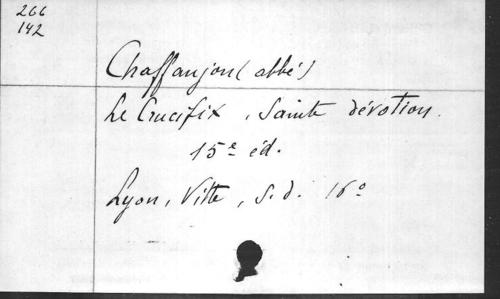 266
142
Chaffanjon (abbé)
Le Crucifix, Sainte dévotion.
15e éd.
Lyon, Vitte, s.d. 16o